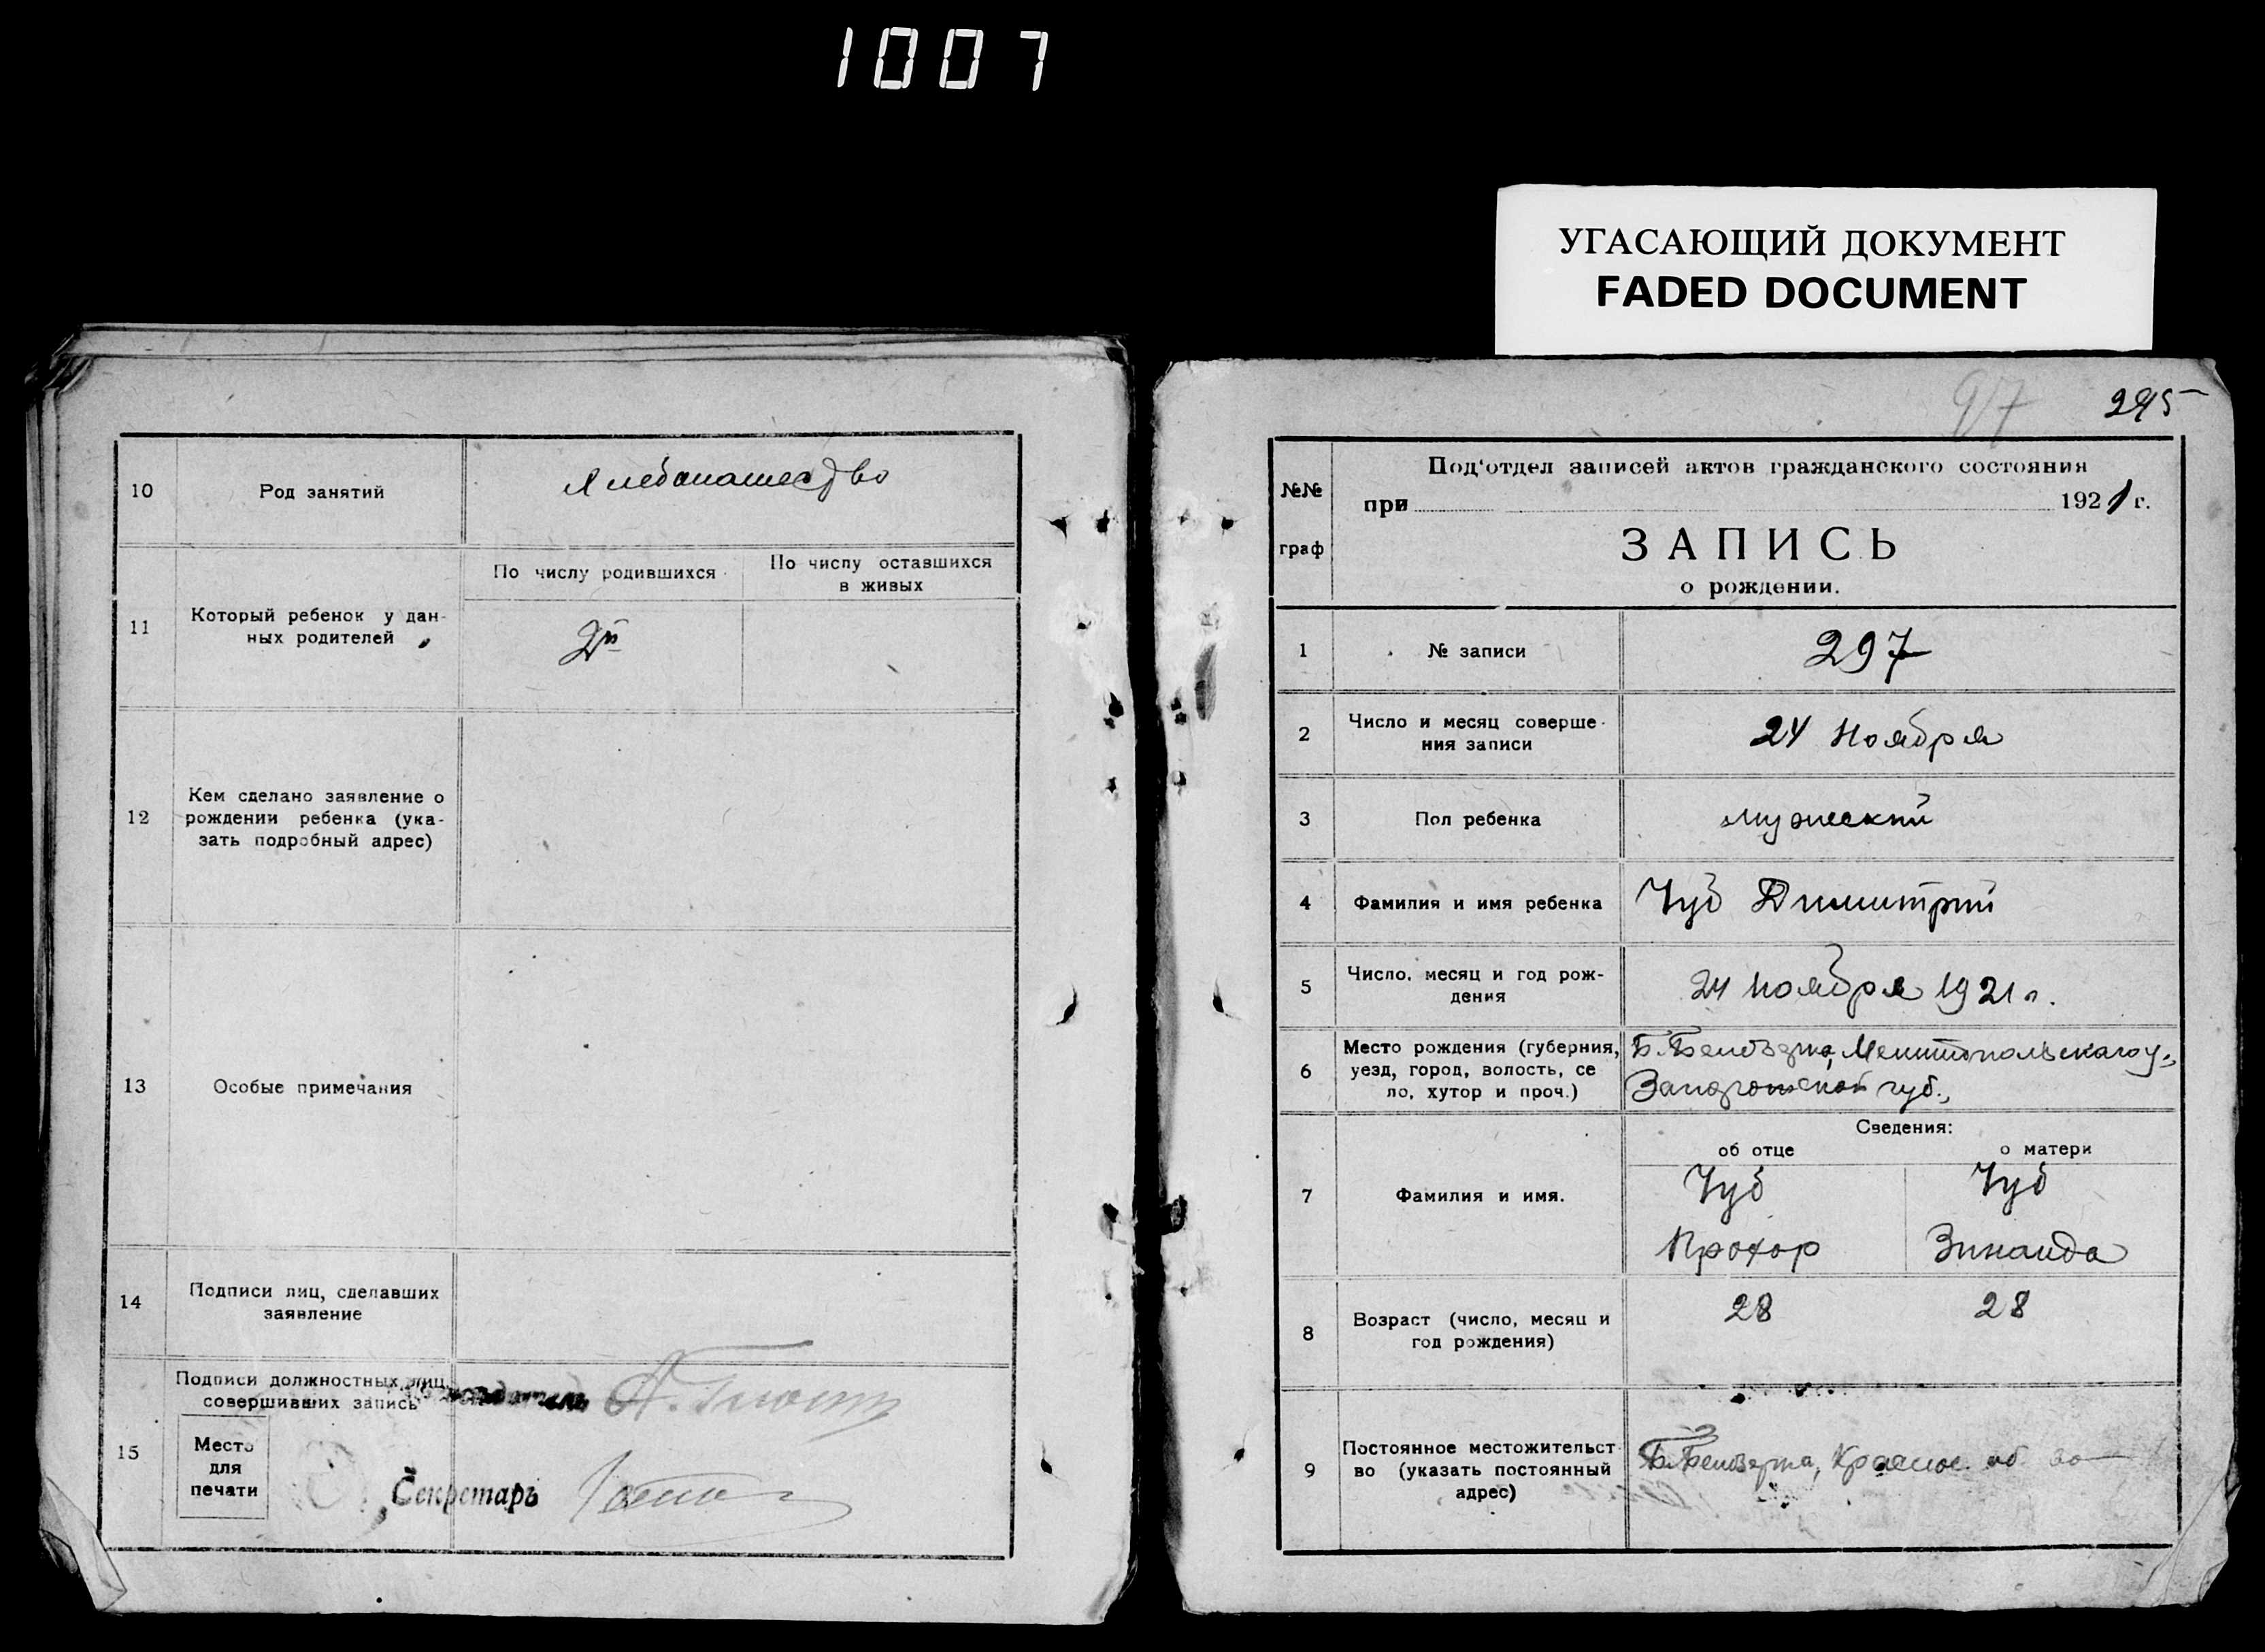 1007
УГАСАЮЩИЙ ДОКУМЕНТ
FADED DOCUMENT
10
Род занятий
Хлебопашество
11
Который ребенок у дан-
ных родителей
По числу родившихся
По числу оставшихся
в живых
2й
12
Кем сделано заявление о
рождении ребенка (ука-
зать подробный адрес)
13
Особые примечания
14
Подписи лиц, сделавших
заявление
15
Подписи должностных лиц,
совершивших запись
Место
для
печати
Секретарь
97
295
№№
граф
Под'отдел записей актов гражданского состояния
при 1921 г.
ЗАПИСЬ
о рождении.
1
№ записи
297
2
Число и месяц соверше-
ния записи
24 Ноября
3
Пол ребенка
мужеский
4
Фамилия и имя ребенка
Чуб Димитрий
5
Число, месяц и год рож-
дения
24 Ноября 1921 г.
6
Место рождения (губерния,
уезд, город, волость, се
ло, хутор и проч.)
Б. Белозерка, Мелитопольскаго у.,
Запорожской губ.,
Сведения:
об отце
о матери
7
Фамилия и имя.
Чуб
Прохор
Чуб
Зинаида
8
Возраст (число, месяц и
год рождения)
28
28
9
Постоянное местожительст
во (указать постоянный
адрес)
Б. Белозерка,